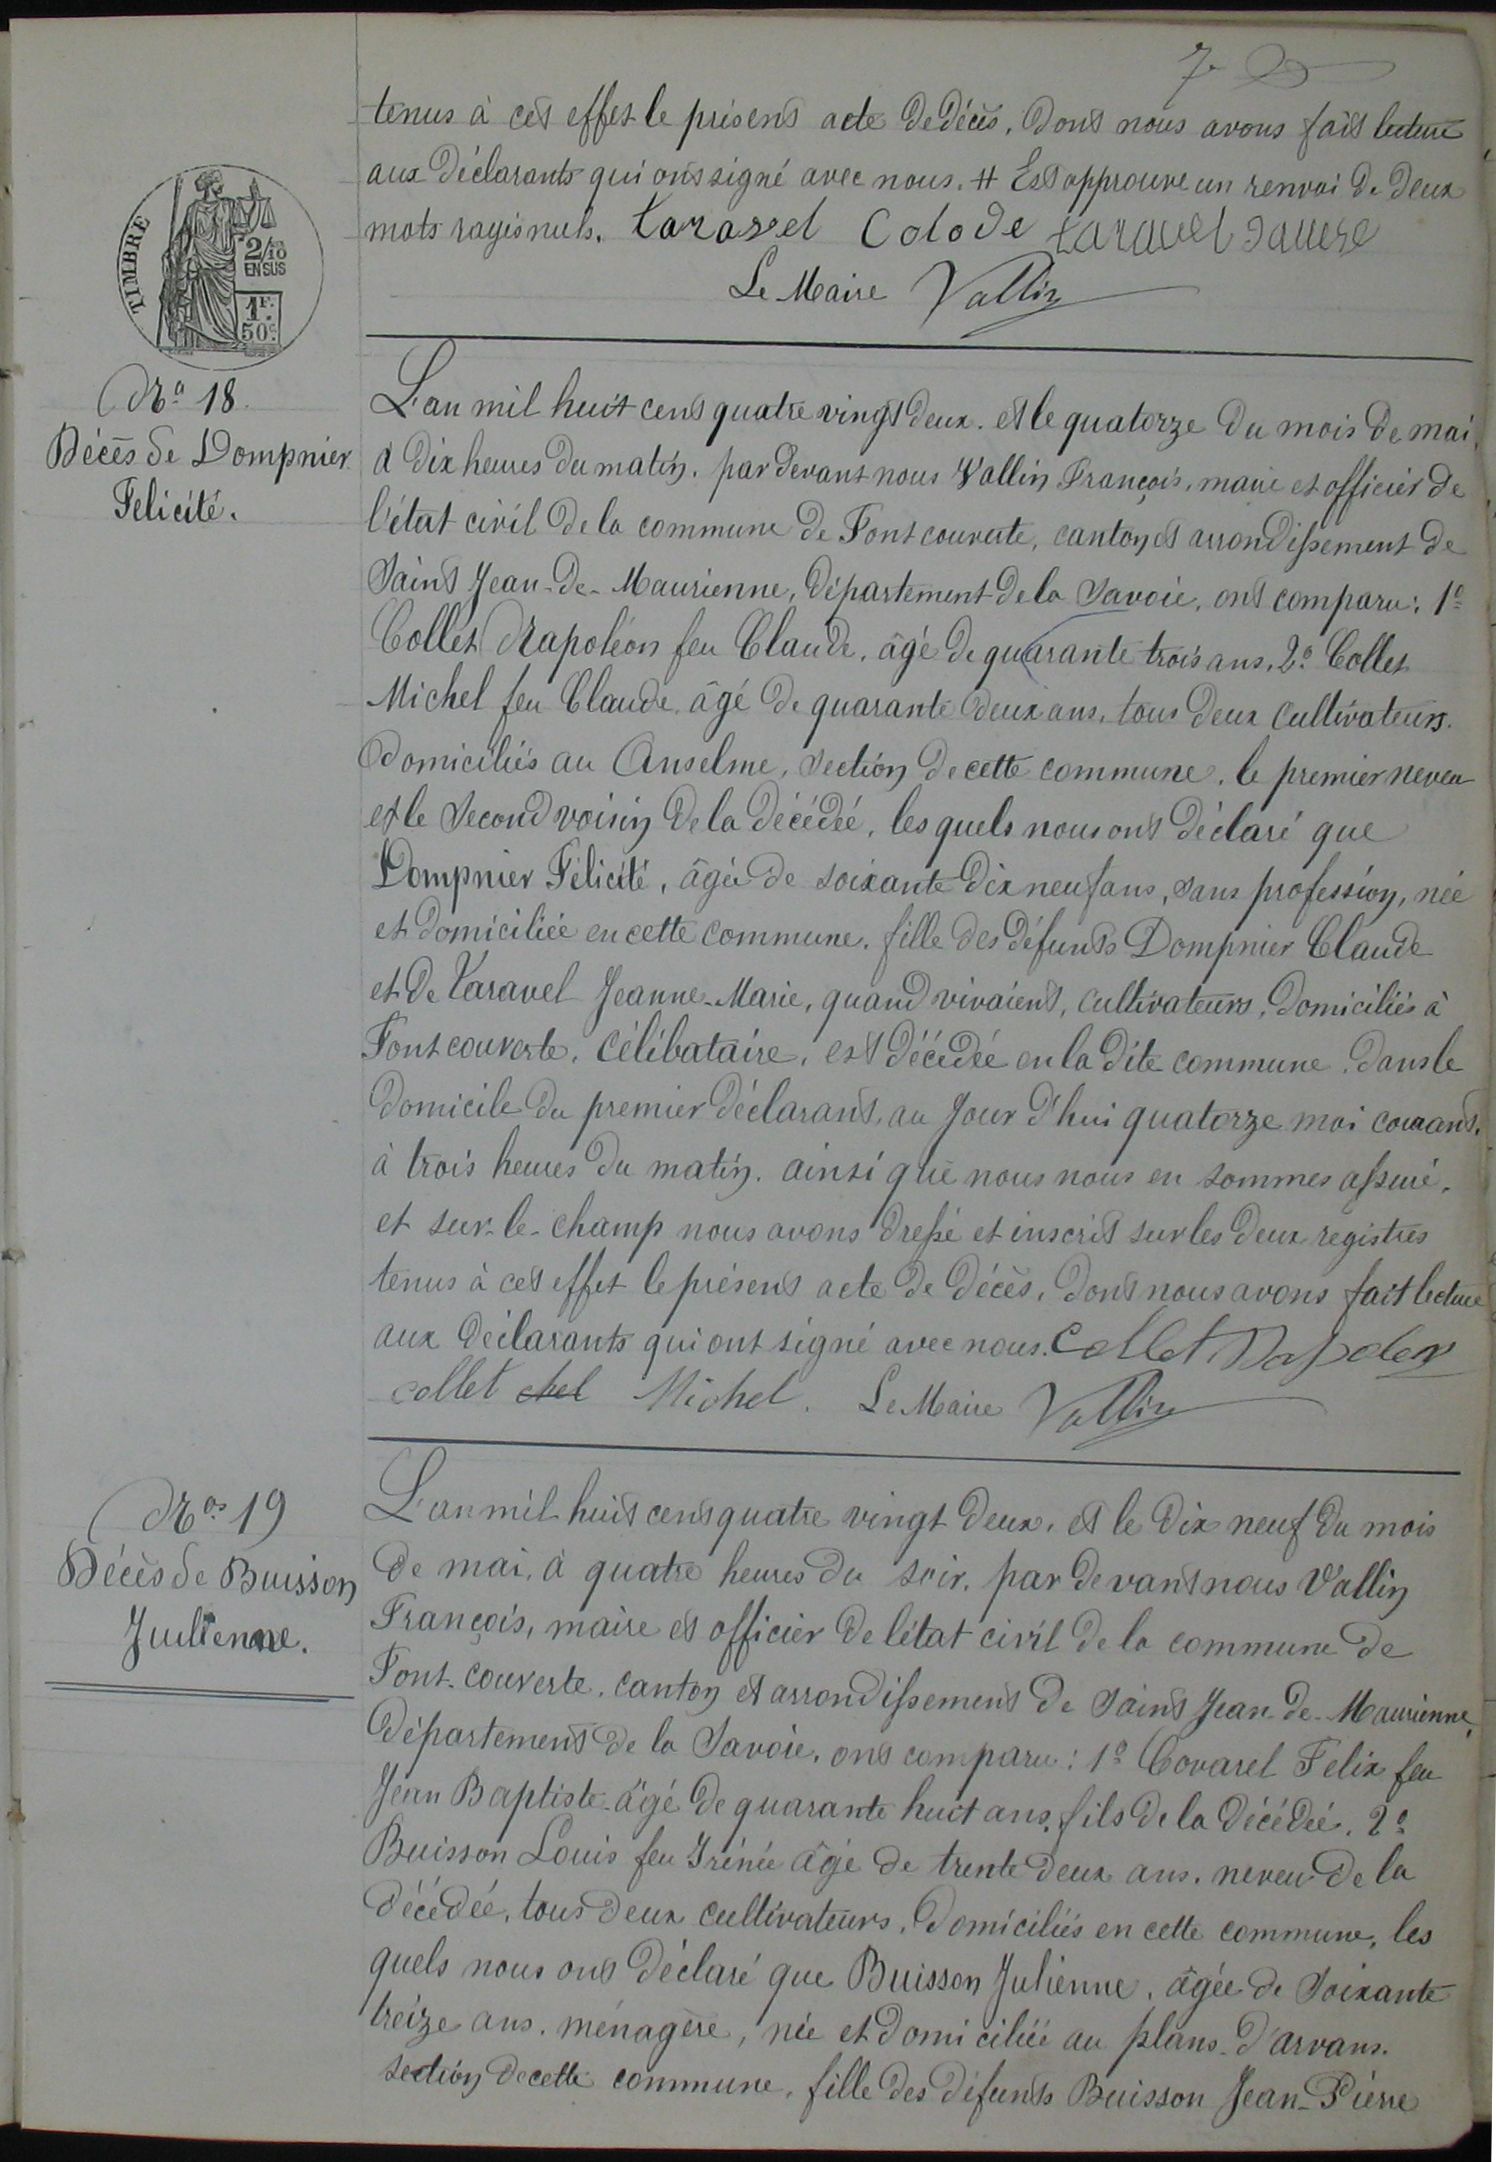 7
tenus à cet effet le présent acte de décès, dont nous avons fait lecture
aux déclarants qui ont signé avec nous. # Est approuvé un renvoi de deux
mots rayés nuls. taravel Colode taravel
Le Maire Vallin
TIMBRE
2/10
EN SUS
1F.
50c.
No 18.
Décès de Dompnier
Felicité.
L'an mil huit cent quatre vingt deux. et le quatorze du mois de mai,
à dix heures du matin. par devant nous Vallin François, maire et officier de
l'état civil de la commune de Font couverte, canton et arrondissement de
Saint Jean-de-Maurienne, département de la Savoie, ont comparu: 1o
Collet Napoléon feu Claude, âgé de quarante trois ans, 2o Collet
Michel feu Claude, âgé de quarante deux ans, tous deux cultivateurs.
domiciliés au Anselme, section de cette commune, le premier neveu
et le second voisin de la décédée, les quels nous ont déclaré que
Dompnier Félicité, âgée de soixante dix neuf ans, sans profession, née
et domiciliée en cette commune, fille des défunts Dompnier Claude
et de Taravel Jeanne-Marie, quand vivaient, cultivateurs, domiciliés à
Font couverte, célibataire, est décédée en la dite commune, dans le
domicile du premier déclarant, au jour d'hui quatorze mai courant,
à trois heures du matin. ainsi que nous nous en sommes assuré,
et sur-le-champ nous avons dressé et inscrit sur les deux registres
tenus à cet effet le présent acte de décès, dont nous avons fait lecture
aux déclarants qui ont signé avec nous. Collet Napoleon
collet chel Michel. Le Maire Vallin
Nos 19
Décès de Buisson
Julienne.
L'an mil huit cent quatre vingt deux, et le dix neuf du mois
de mai, à quatre heures du soir, par devant nous Vallin
François, maire et officier de l'état civil de la commune de
Font-couverte, canton et arrondissement de Saint Jean-de-Maurienne,
département de la Savoie, ont comparu: 1o Covarel Félix feu
Jean Baptiste âgé de quarante huit ans, fils de la décédée, 2o
Buisson Louis feu Irénée âgé de trente deux ans, neveu de la
décédée, tous deux cultivateurs, domiciliés en cette commune, les
quels nous ont déclaré que Buisson Julienne, âgée de soixante
treize ans, ménagère, née et domiciliée au plans-d'arvans.
section de cette commune, fille des défunts Buisson Jean-Pierre